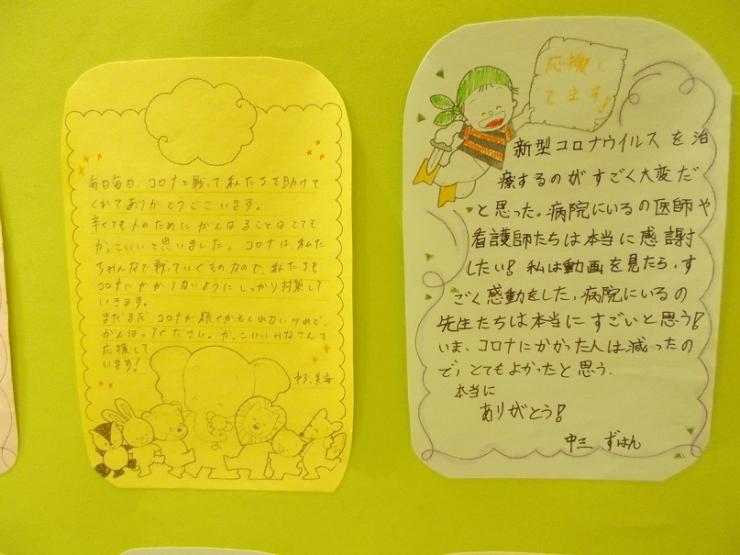 毎日毎日、コロナと戦って私たちを助けて
くれてありがとうございます。
辛くても人のためにがんばることはとても
かっこいいと思いました。コロナは、私た
ちみんなで戦っていくものなので、私たちも
コロナにかからないようにしっかり対策して
いきます。
まだまだコロナが続くかもしれないけれど、
がんばってください。かっこいいみなさんを
応援して
います!
応援し
てます!
新型コロナウイルスを治
療するのがすごく大変だ
と思った。病院にいるの医師や
看護師たちは本当に感謝
したい!私は動画を見たら、す
ごく感動をした、病院にいるの
先生たちは本当にすごいと思う!
いま、コロナにかかった人は減ったの
で、とてもよかったと思う.
本当に
ありがとう!
中三 ずはん